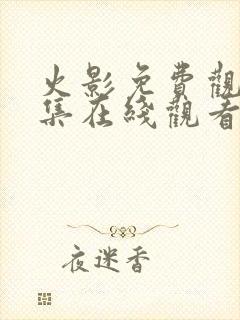 火影免費觀
集在綫觀看
夜迷香